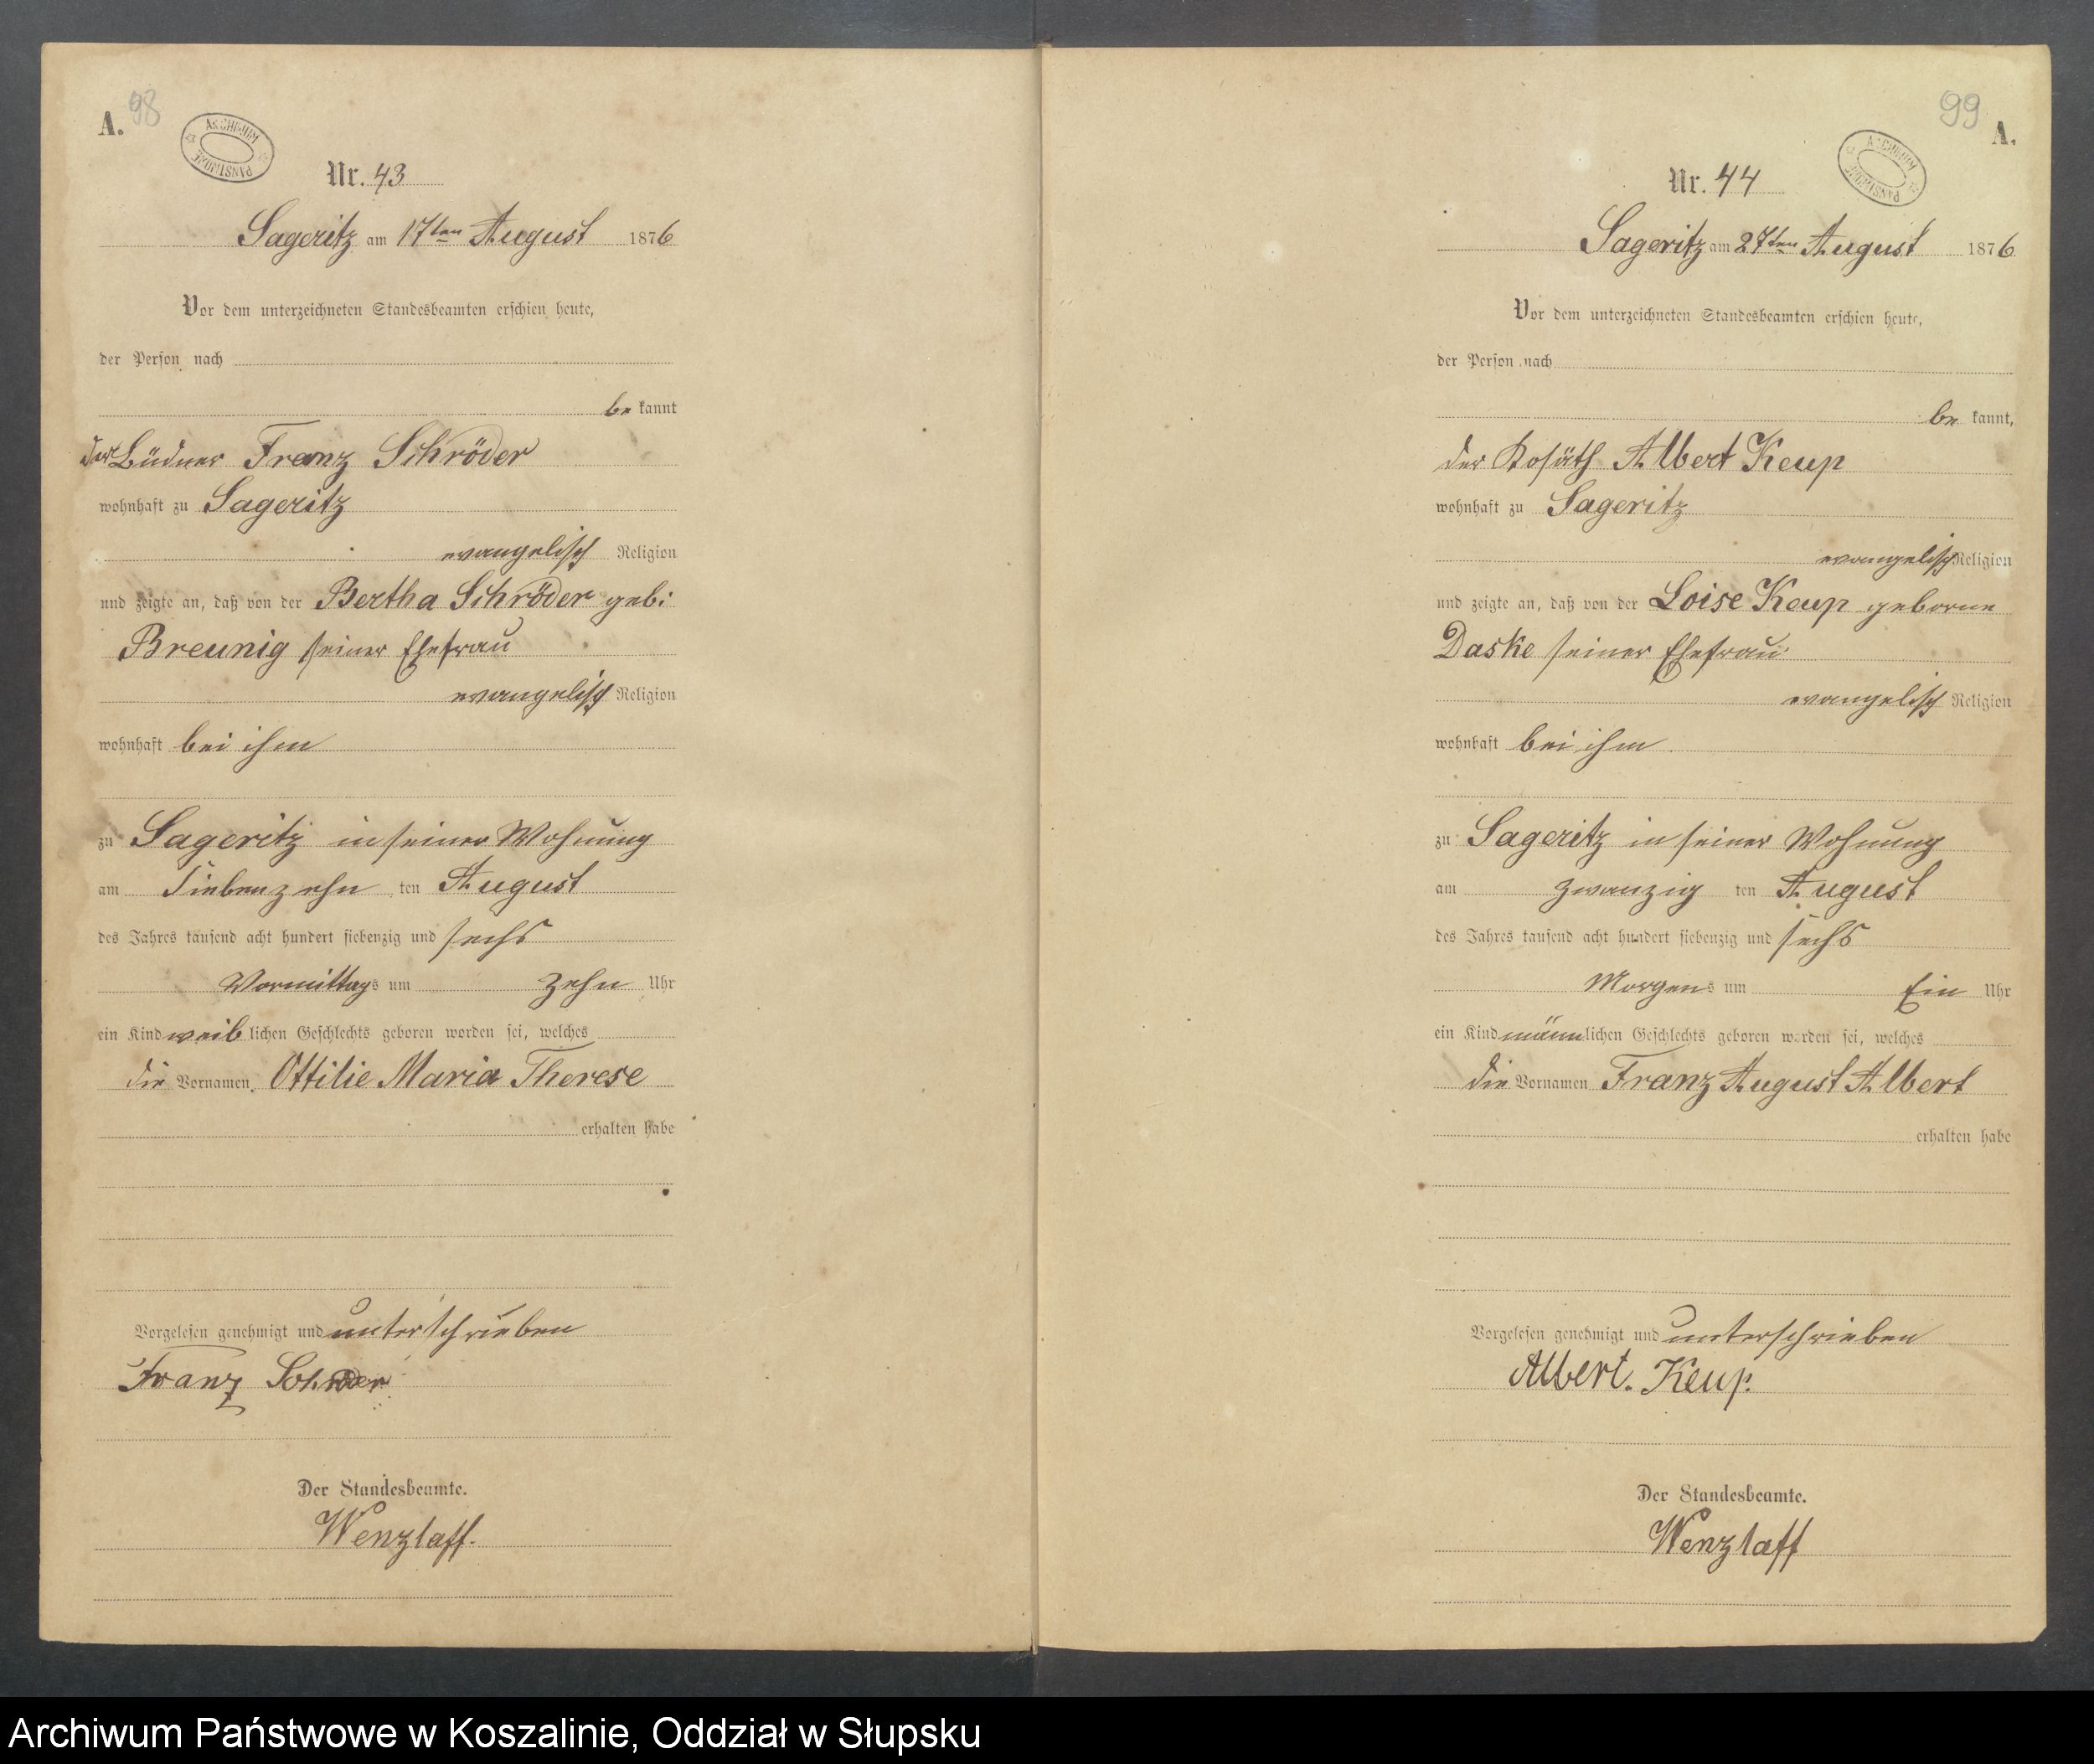 A. 98
ARCHIWUM PAŃSTWOWE
Nr. 43
Sageritz am 17ten August 1876
Vor dem unterzeichneten Standesbeamten erschien heute,
der Person nach
be kannt
der Büdner Franz Schröder
wohnhaft zu Sageritz
evangelisch Religion
und zeigte an, daß von der Bertha Schröder geb:
Breunig seiner Ehefrau
evangelisch Religion
wohnhaft bei ihm
zu Sageritz in seiner Wohnung
am Siebenzehn ten August
des Jahres tausend acht hundert siebenzig und sechs
Vormittags um Zehn Uhr
ein Kind weiblichen Geschlechts geboren worden sei, welches
die Vornamen Ottilie Maria Therese
erhalten habe
Vorgelesen genehmigt und unterschrieben
Franz Schröder
Der Standesbeamte.
Wenzlaff.
99 A.
ARCHIWUM PAŃSTWOWE
Nr. 44
Sageritz am 27ten August 1876
Vor dem unterzeichneten Standesbeamten erschien heute,
der Person nach
be kannt,
der Kosäth Albert Keup
wohnhaft zu Sageritz
evangelisch Religion
und zeigte an, daß von der Loise Keup geborne
Daske seiner Ehefrau
evangelisch Religion
wohnhaft bei ihm
zu Sageritz in seiner Wohnung
am zwanzig ten August
des Jahres tausend acht hundert siebenzig und sechs
Morgens um Ein Uhr
ein Kind männlichen Geschlechts geboren worden sei, welches
die Vornamen Franz August Albert
erhalten habe
Vorgelesen genehmigt und unterschrieben
Albert. Keup.
Der Standesbeamte.
Wenzlaff
Archiwum Państwowe w Koszalinie, Oddział w Słupsku